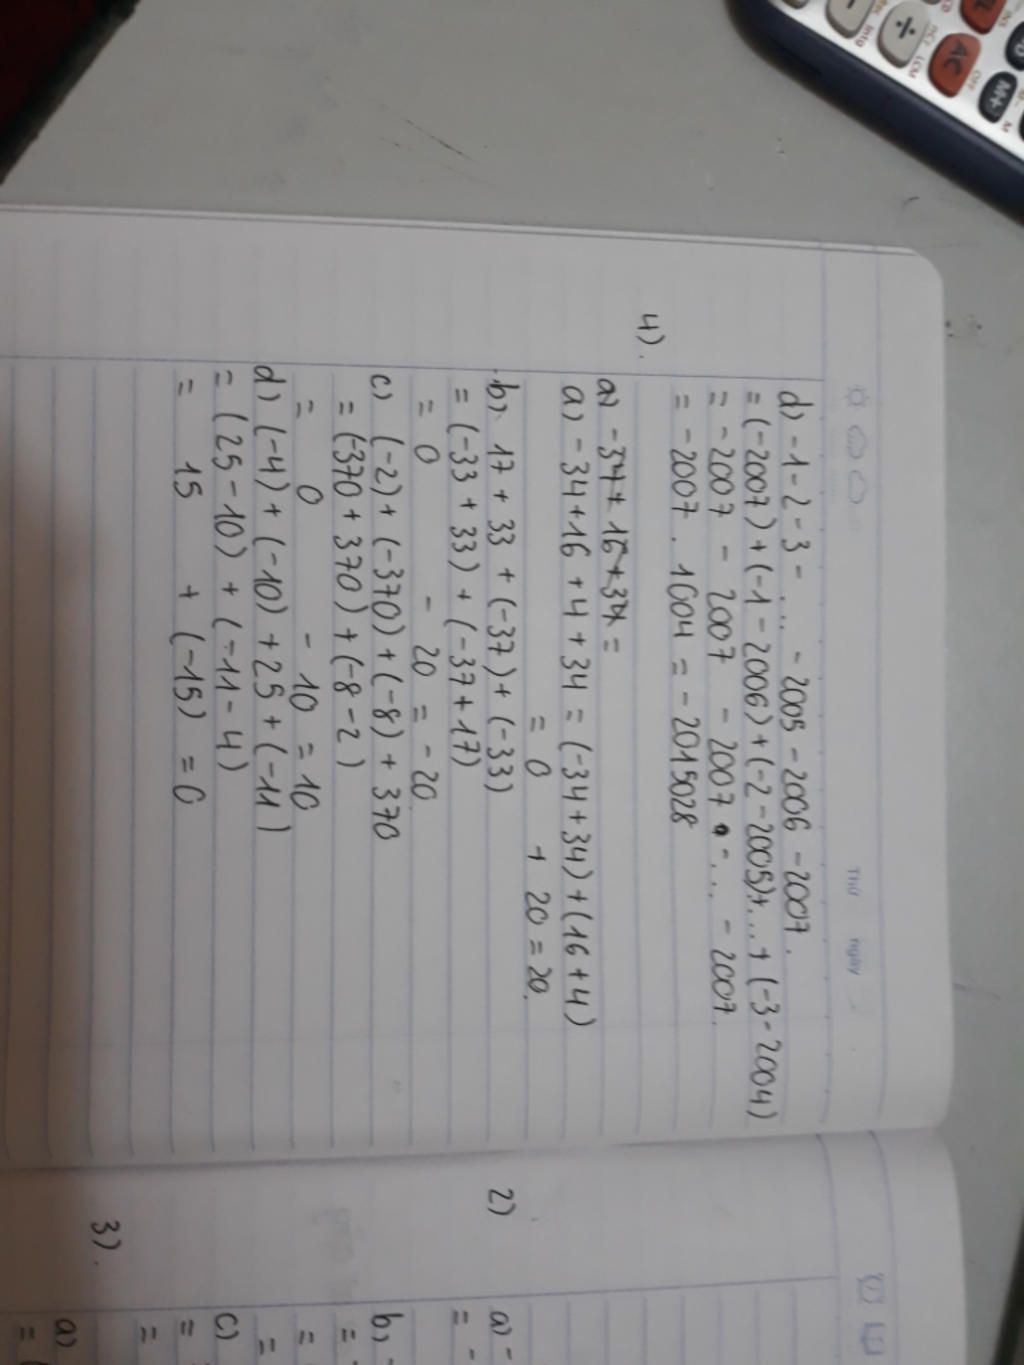 Thứ ngày
d) -1-2-3-... -2005-2006-2007.
= (-2007)+(-1-2006)+(-2-2005)+...+(-3-2004)
= -2007 - 2007 - 2007 - ... - 2007.
= -2007 . 1004 = -2015028
4).
a) -34+16+34 =
a) -34+16+4+34 = (-34+34)+(16+4)
= 0 + 20 = 20.
b). 17+33+(-37)+(-33)
= (-33+33)+(-37+17)
= 0 - 20 = -20
c) (-2)+(-370)+(-8)+370
= (-370+370)+(-8-2)
= 0 - 10 = 10
d) (-4)+(-10)+25+(-11)
= (25-10)+(-11-4)
= 15 + (-15) = 0
2)
a) -
= -
b)
=
=
=
c)
=
=
3).
a)
=
÷
AC
M+
LCM
OFF
M
Intg